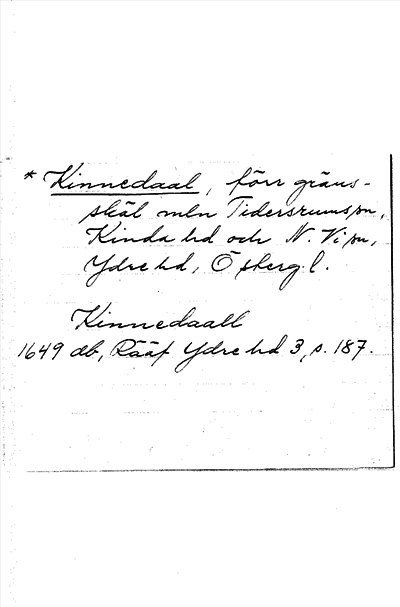 * Kinnedaal, förr gräns-
skäl mln Tidersrumssn,
Kinda hd och N. Vi sn,
Ydre hd, Ö sberg l.
Kinnedaall
1649 db, Rääf Ydre hd 3, s. 187.